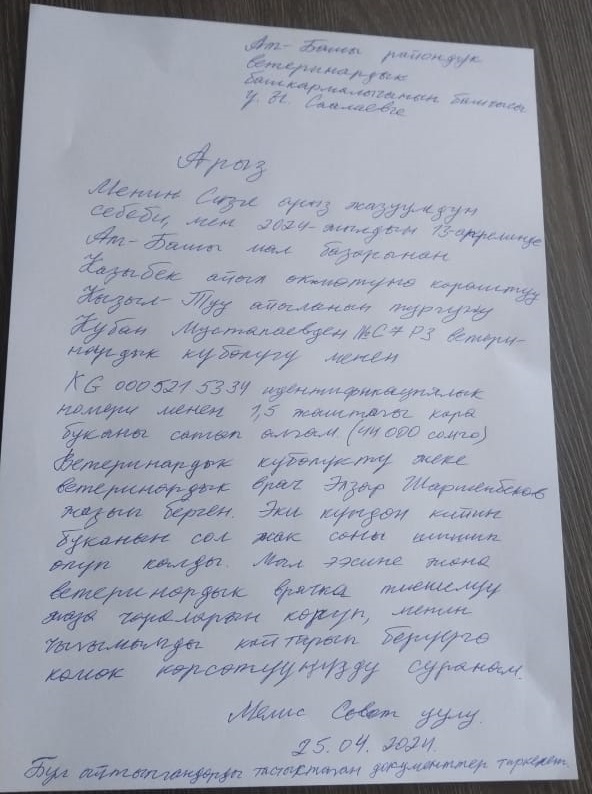 Ат-Башы райондук
ветеринардык
башкармалыгынын башчысы
У. Ы.
Арыз
Менин Сизге арыз жазуумдун
себеби, мен 2024-жылдын 13-апрелинде
Ат-Башы мал базарынан
Казыбек айыл окмотуно караштуу
Кызыл-Туу айылынын тургуну
Кубан Мустапаевден ветери-
нардык куболугу менен
KG 000521 5334 идентификациялык
номери менен 1,5 жаштагы кара
буканы сатып алгам. (44 000 сомго)
Ветеринардык куболукту жеке
ветеринардык врач Элзар Шаршенбеков
жазып берген. Эки кундон кийин
буканын сол жак саны шишип
олуп калды. Мал ээсине жана
ветеринардык врачка тиешелуу
жаза чараларын коруп, менин
чыгымымды кайтарып берууго
комок корсотууңузду суранам.
Мелис Совет уулу.
25.04.2024.
Бул айтылгандарды тастыктаган документтер тиркелет.